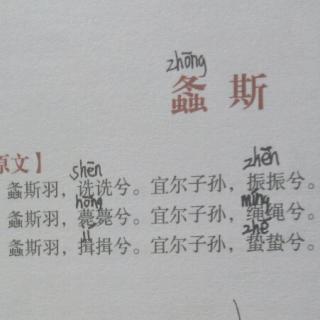 zhōng
螽斯
原文】
shēn zhēn
螽斯羽，诜诜兮。宜尔子孙，振振兮。
hōng mǐng
螽斯羽，薨薨兮。宜尔子孙，绳绳兮。
jí zhé
螽斯羽，揖揖兮。宜尔子孙，蛰蛰兮。